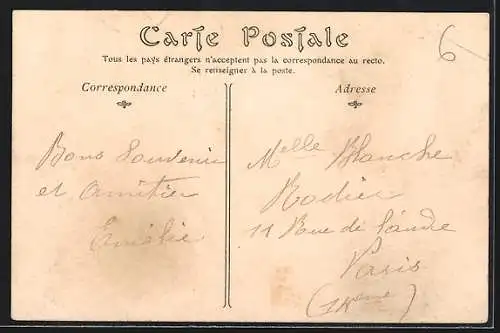 Carte Postale
6
Tous les pays étrangers n'acceptent pas la correspondance au recto.
Se renseigner à la poste.
Correspondance
Adresse
Bons Souvenir
et Amitiés
Amélie
Melle Blanche
Rodier
11 Rue de
Paris